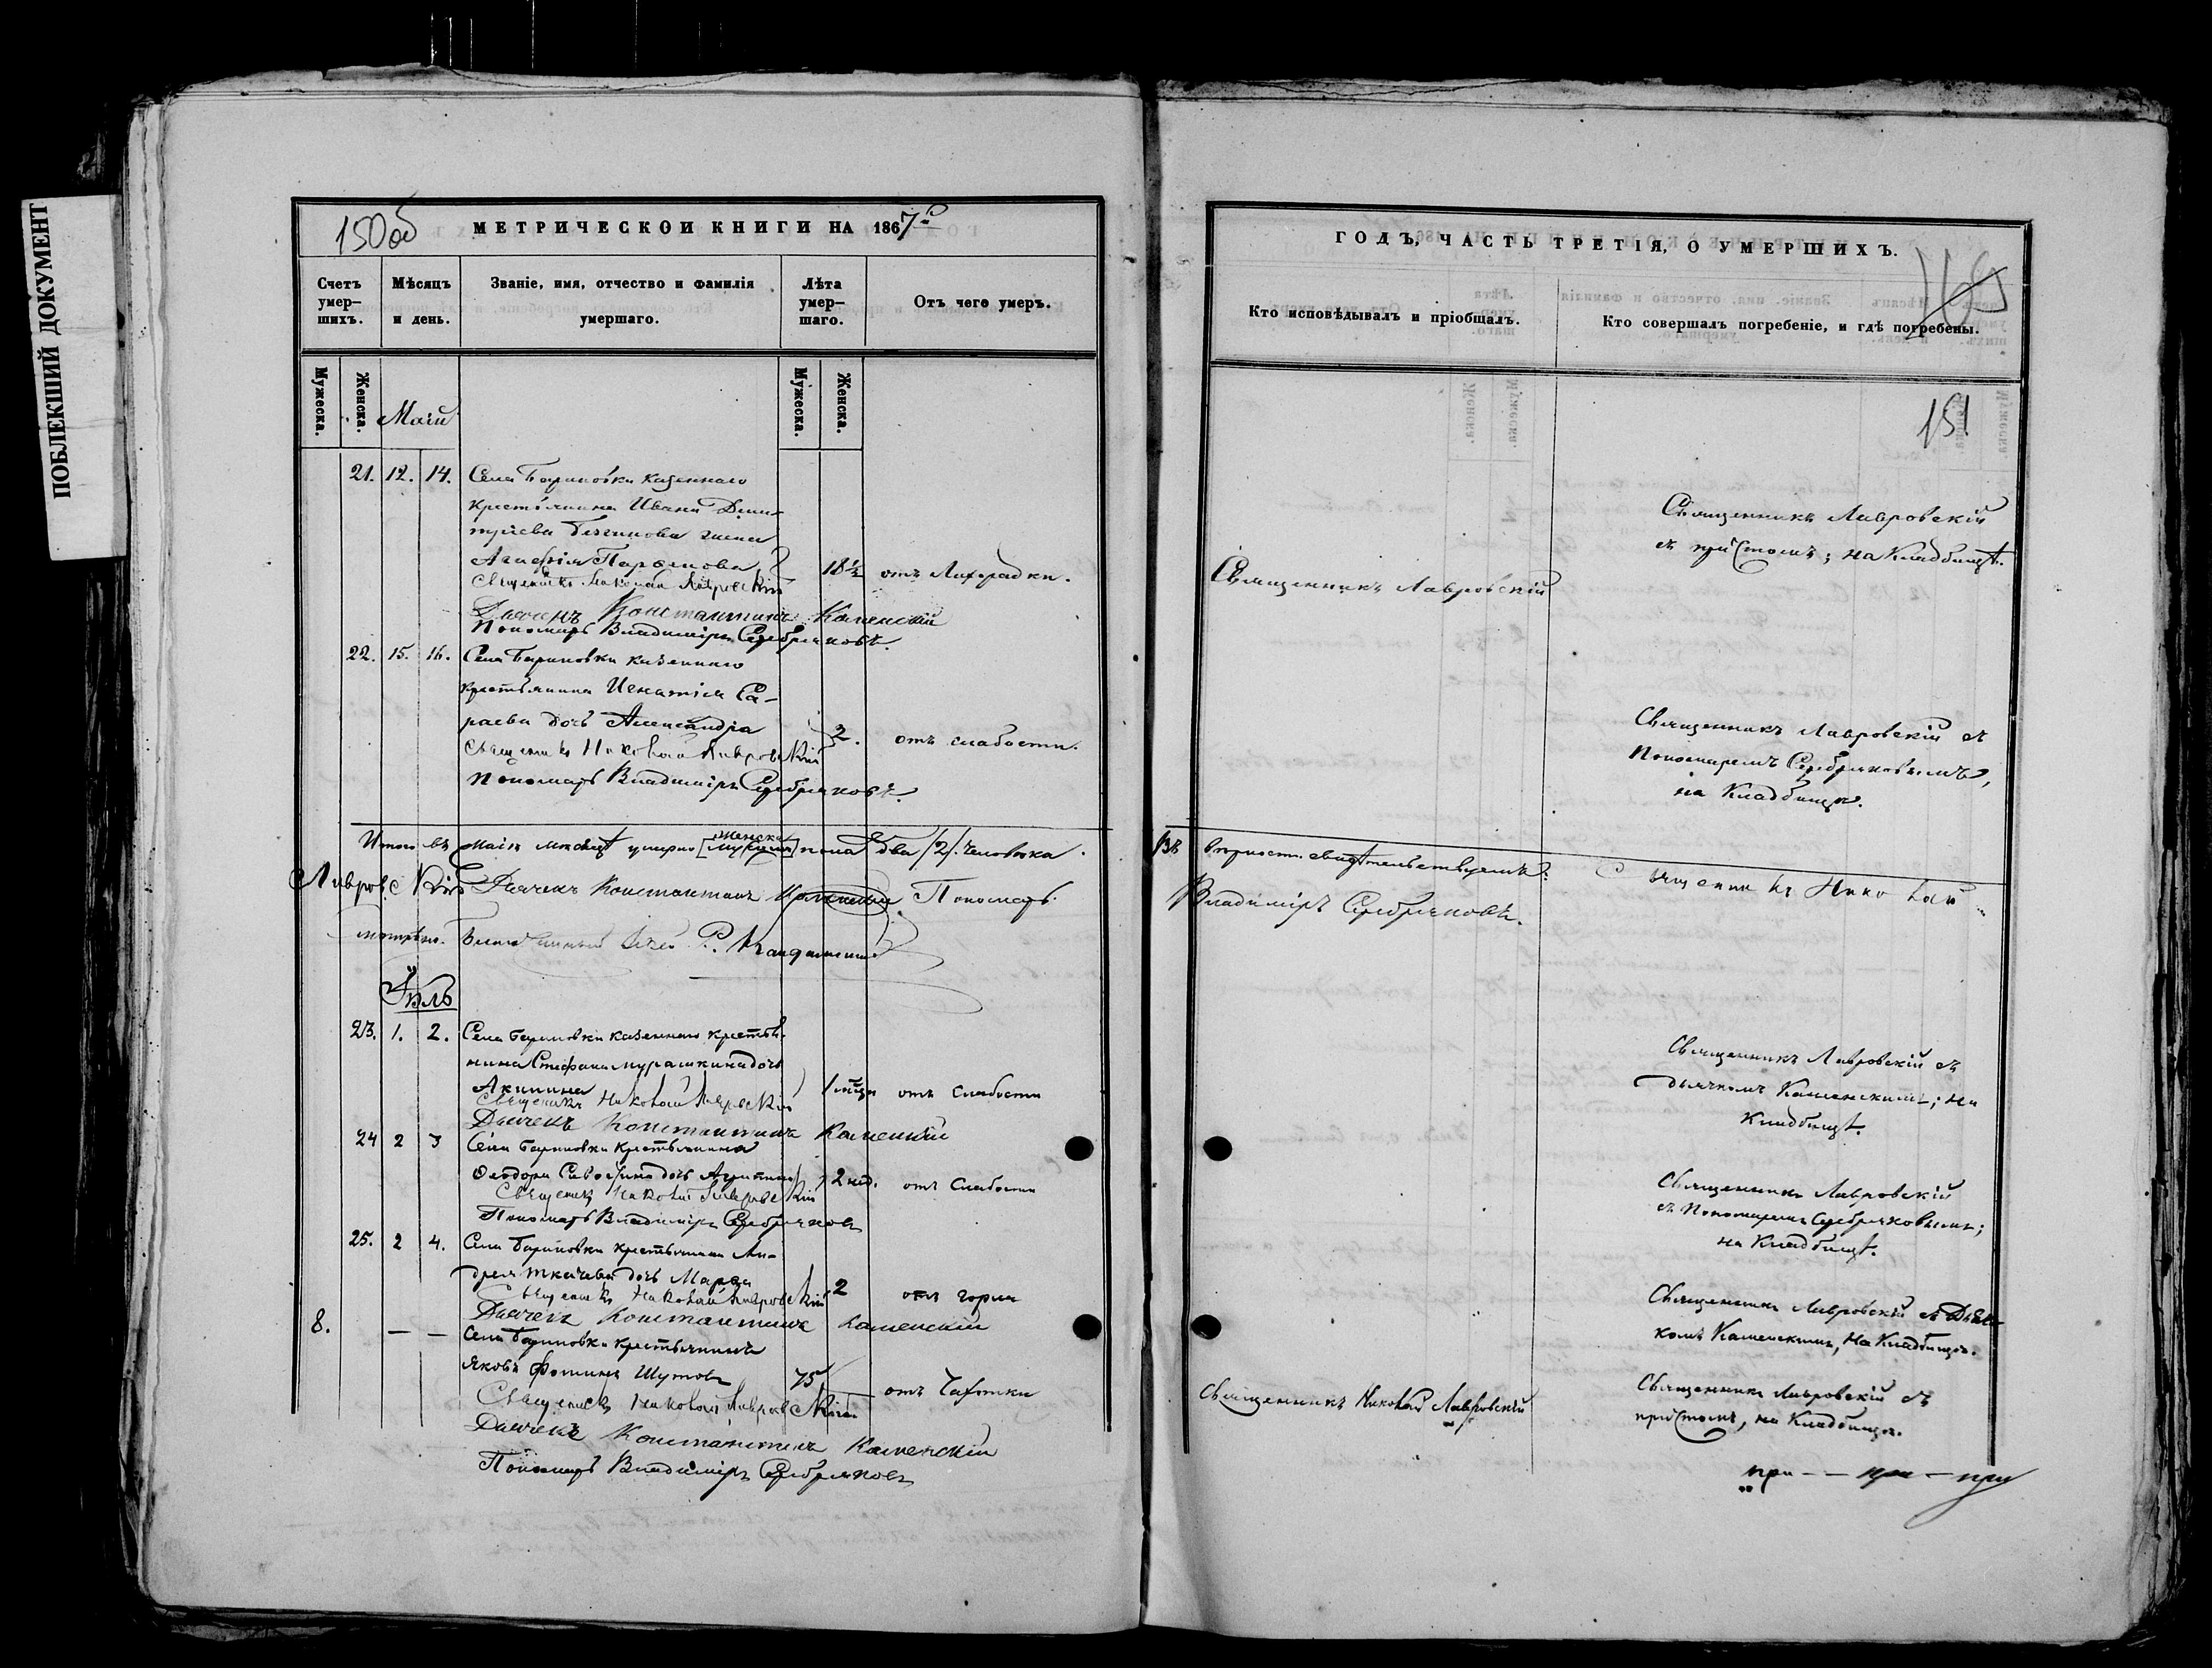 ПОБЛЕКШИЙ ДОКУМЕНТ
150об
МЕТРИЧЕСКОИ КНИГИ НА 1867
Счетъ умер-шихъ.
Мѣсяцъ и день.
Званіе, имя, отчество и фамилія умершаго.
Лѣта умер-шаго.
Отъ чего умеръ.
Мужеска.
Женска.
Маій
Мужеска.
Женска.
21. 12. 14. Села Бариновки казеннаго
крестьянина Ивана Дими-
тріева жена
Агафія Парѳенова 18½ отъ Лихорадки.
Священникъ Николай Лавровскій
Дьячекъ Константинъ Каменскій
Пономарь Владиміръ Серебряковъ.
22. 15. 16. Села Бариновки казеннаго
крестьянина Игнатія Са-
раева дочь Александра 2. отъ слабости.
Священникъ Николай Лавровскій
Пономарь Владиміръ Серебряковъ.
Итого въ Маіи мѣсяцѣ умерло женска пола два /2/. человѣка.
Лавровскій Дьячекъ Константинъ Каменскій. Пономарь
Іюль
23. 1. 2. Села Бариновки казеннаго крестья-
нина Стефана Мурашкина дочь
Акилина отъ слабости
Священникъ Николай Лавровскій
Дьячекъ Константинъ Каменскій
24 2 3 Села Бариновки крестьянина
Ѳеодора дочь 2 нед. отъ слабости
Священникъ Николай Лавровскій
Пономарь Владиміръ Серебряковъ
25. 2 4. Села Бариновки крестьянина Ан-
дрея Ткачева дочь Марѳа 2 отъ горла
Священникъ Николай Лавровскій
Дьячекъ Константинъ Каменскій
8. — — Села Бариновки крестьянинъ
Яковъ Фоминъ Шутовъ 75 отъ Чахотки
Священникъ Николай Лавровскій
Дьячекъ Константинъ Каменскій
Пономарь Владиміръ Серебряковъ
ГОДЪ, ЧАСТЬ ТРЕТІЯ, О УМЕРШИХЪ.
Кто исповѣдывалъ и пріобщалъ.
Кто совершалъ погребеніе, и гдѣ погребены.
151
Священникъ Лавровскій
Священникъ Лавровскій
съ причтомъ; на Кладбищѣ.
Священникъ Лавровскій съ
Пономаремъ Серебряковымъ,
на Кладбищѣ.
Въ вѣрности свидѣтельствуемъ: Священникъ Николай
Владиміръ Серебряковъ.
Священникъ Лавровскій съ
дьячкомъ Каменскимъ; на
Кладбищѣ.
Священникъ Лавровскій
съ Пономаремъ Серебряковымъ;
на Кладбищѣ.
Священникъ Лавровскій съ Дьяч-
комъ Каменскимъ, на Кладбищѣ.
Священникъ Николай Лавровскій
Священникъ Лавровскій съ
причтомъ, на Кладбищѣ.
при — — при — при